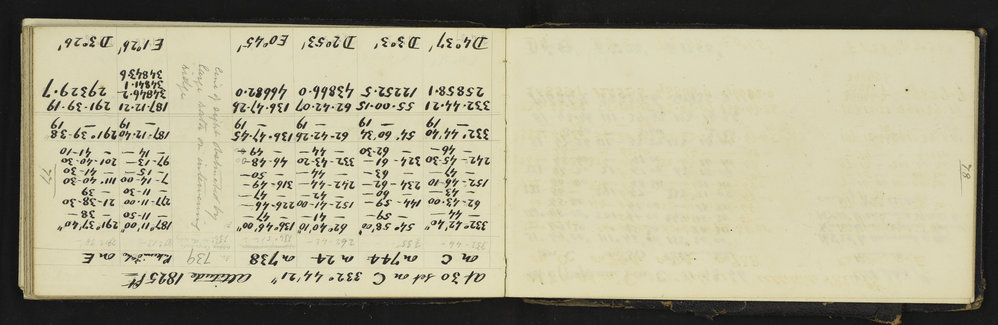 at 30 set on C 332° 44' 21" Altitude 1825 ft
on C on 744 on 24 on 738 739 on E
332°42'40" 54°58'00" 62°40'10" 136°46'00" 187°11'00" 291°37'40"
— 44 — — 59 — — 41 — — 47 — — 11-50 — 38 —
62-43-00 144-59- 152-41-00 226-46- 277-11-00 21-38-30
— 43 — — 60 — — 42 — — 47 — — 11-30 — 39
152-46-10 234-62- 242-44- 316-49- 7-14-00 111-40-30
— 47 — — 63 — — 44 — — 50 — — 15 — — 41-30
242-45-30 324-61- 332-43-20 46-48-00 97-13- 201-40-30
— 46 — — 62-30 — 44 — — 49 — — 14 — — 41-10
332°44 40 54 60 34 62-42-26 136-47-45 187-12-40 291°39-38
— 19 — 19 — 19 — 19 — 19 — 19
332-44-21 55-00-15 62-42-07 136-47-26 187-12-21 291-39-19
25858.1 12252.5 43866.0 46682.0 34846.2 29329.7
34841.1
348436
D4°37' D3°3' D2°53' E0°45' E1°26' D3°26'
line of sight obstructed by
large rata on intervening
ridge
77
78